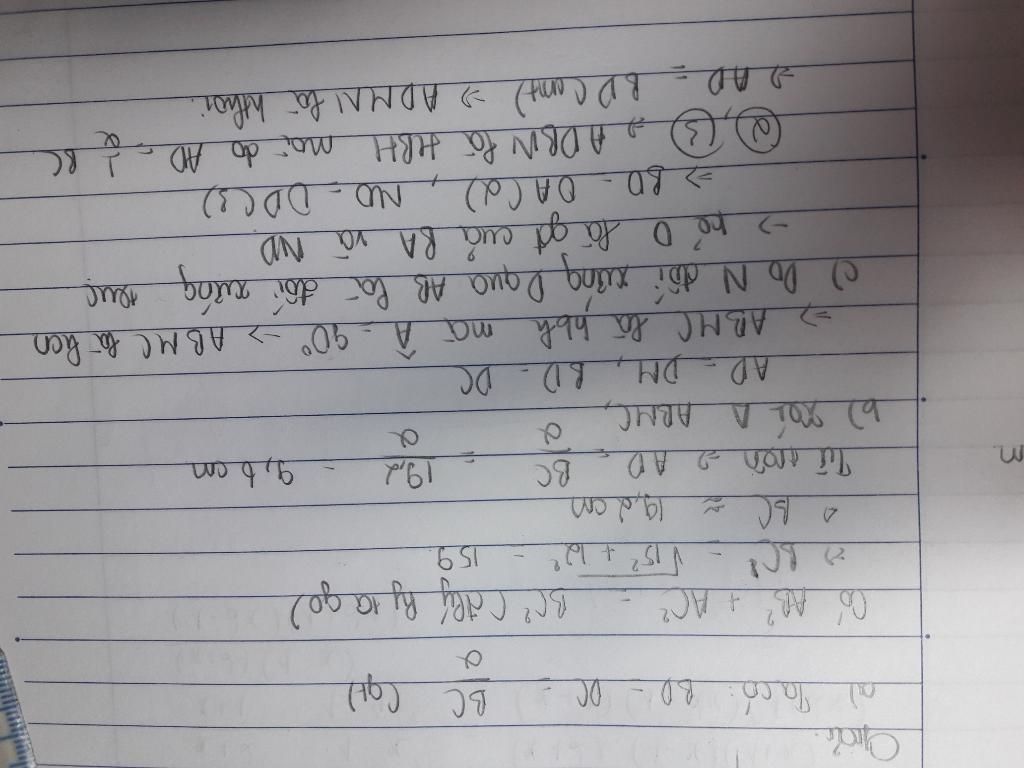 Giải:
a) Ta có: BD = DC = BC/2 (gt)
Có AB² + AC² = BC² (đlý Py ta go)
=> BC² = √15² + 12² = 159
BC ≈ 19,2 cm
Từ trên => AD = BC/2 = 19,2/2 = 9,6 cm
b) Xét Δ ABMC,
AD = DM, BD = DC
=> ABMC là hbh mà Â = 90° -> ABMC là hcn
c) Do N đối xứng D qua AB là đối xứng trục
-> nê O là gđ của BA và ND
=> BO = OA (2), NO = OD (3)
(2), (3) => ADBN là HBH mà do AD = 1/2 BC
=> AD = BD (cmt) => ADMN là hthoi.
m